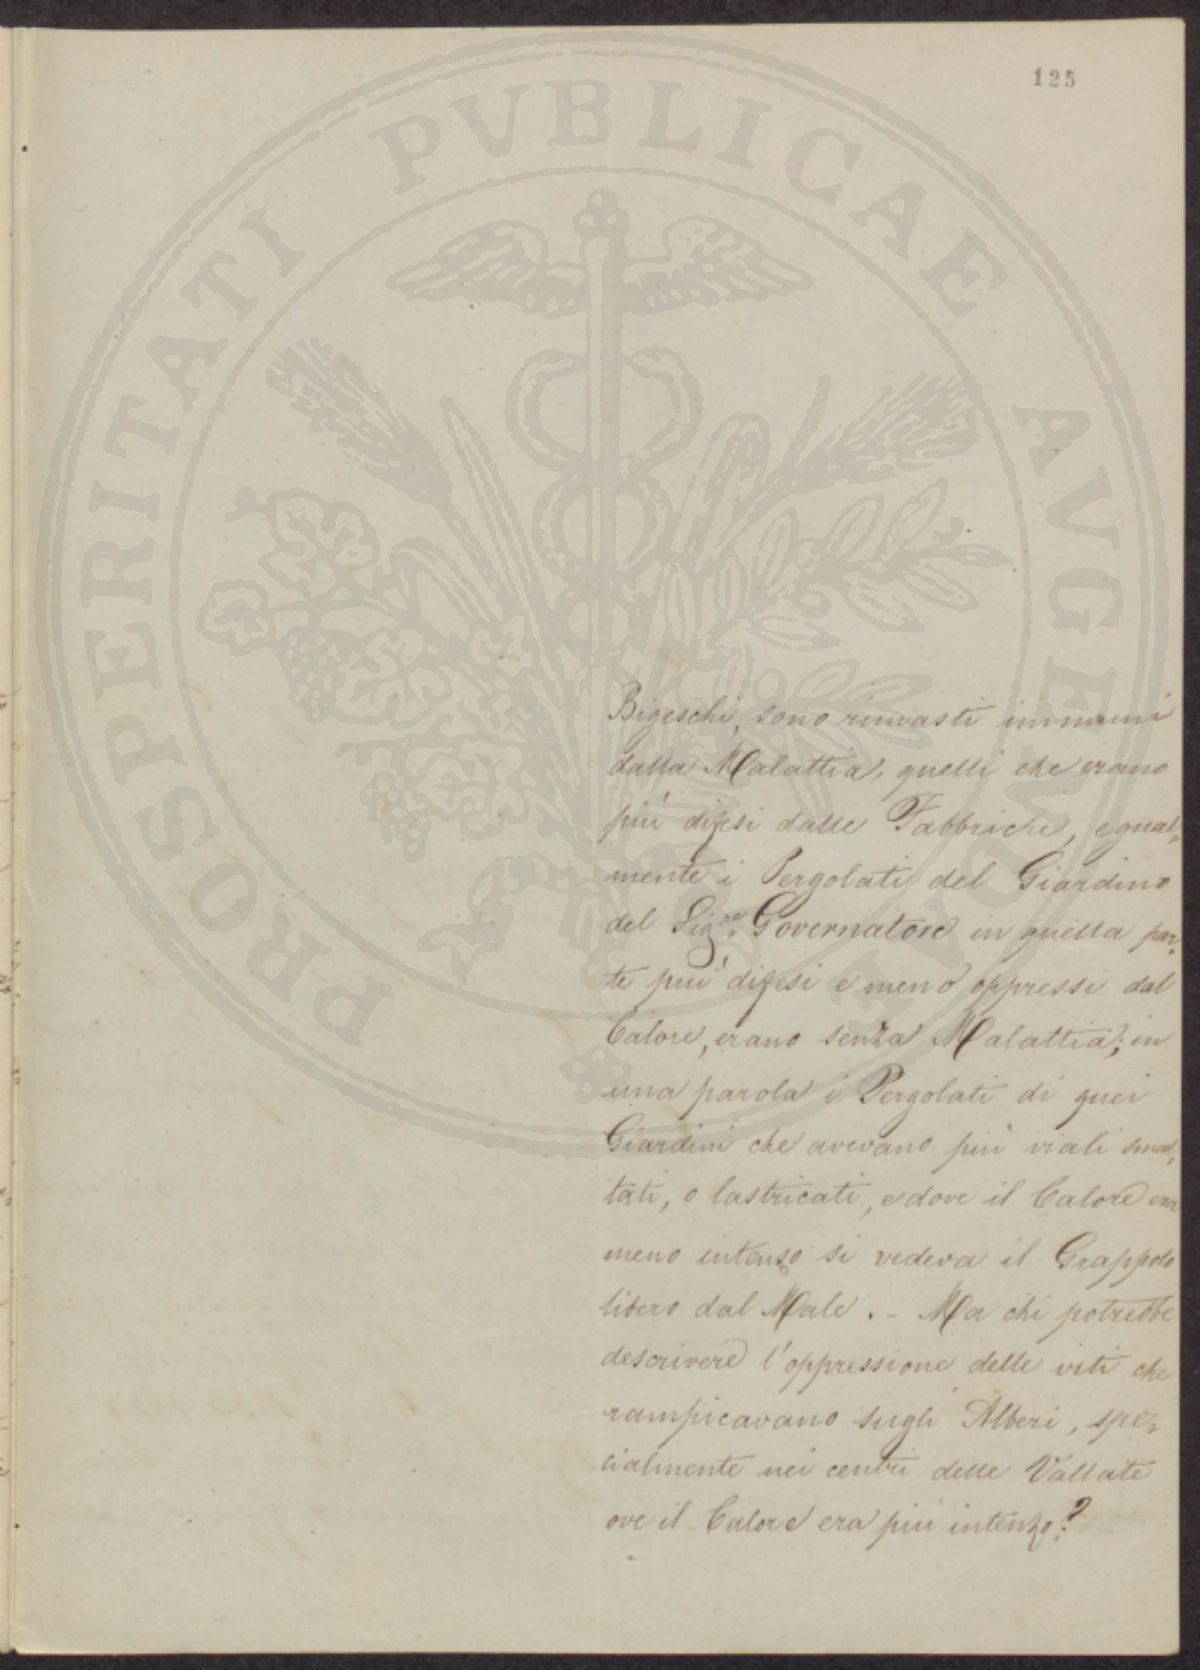 125
PROSPERITATI PVBLICAE AVGENDAE
Bigeschi, sono rimasti immuni
dalla Malattia, quelli che erano
più difesi dalle Fabbriche, egual-
mente i Pergolati del Giardino
del Sig.re Governatore in quella par-
te più difesi e meno oppressi dal
Calore, erano senza Malattia; in
una parola i Pergolati di quei
Giardini che avevano più viali smal-
tati, o lastricati, e dove il Calore era
meno intenso si vedeva il Grappolo
libero dal Male. - Ma chi potrebbe
descrivere l'oppressione delle viti che
rampicavano sugli Alberi, spe-
cialmente nei centri delle Vallate
ove il Calore era più intenzo?